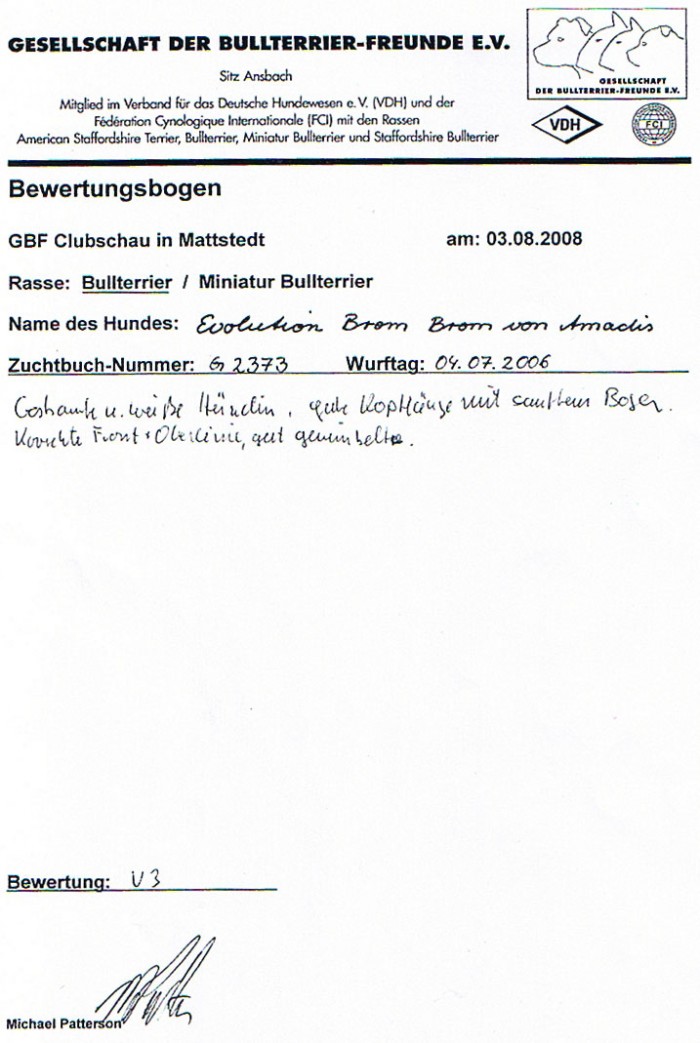 GESELLSCHAFT DER BULLTERRIER-FREUNDE E.V.
Sitz Ansbach
Mitglied im Verband für das Deutsche Hundewesen e. V. (VDH) und der
Fédération Cynologique Internationale (FCI) mit den Rassen
American Staffordshire Terrier, Bullterrier, Miniatur Bullterrier und Staffordshire Bullterrier
GESELLSCHAFT
DER BULLTERRIER-FREUNDE E.V.
VDH
FCI
Bewertungsbogen
GBF Clubschau in Mattstedt am: 03.08.2008
Rasse: Bullterrier / Miniatur Bullterrier
Name des Hundes: Evolution Brom Brom von Amadis
Zuchtbuch-Nummer: G 2373 Wurftag: 04.07.2006
u. weiße Hündin, gute Kopflänge mit sanftem Bogen.
Korrekte Front + Oberlinie, gut gewinkelt.
Bewertung: V3
Michael Patterson